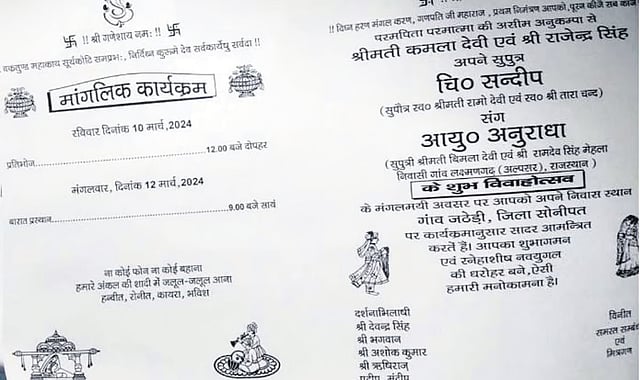 !! श्री गणेशाय नमः !!
वक्रतुण्ड महाकाय सूर्यकोटि समप्रभः, निर्विघ्न कुरूमे देव सर्वकार्येषु सर्वदा !!
मांगलिक कार्यक्रम
रविवार दिनांक 10 मार्च, 2024
प्रतिभोज............12.00 बजे दोपहर
मंगलवार, दिनांक 12 मार्च,2024
बारात प्रस्थान............9.00 बजे सायं
ना कोई फोन ना कोई बहाना
हमारे अंकल की शादी में जलूल-जलूल आना
हन्वीत, रोनीत, कायरा, भविश
!! विघ्न हरण मंगल करण, गणपति जी महाराज , प्रथम निमंत्रण आपको,पूरन कीजे सब काज
परमपिता परमात्मा की असीम अनुकम्पा से
श्रीमती कमला देवी एवं श्री राजेन्द्र सिंह
अपने सुपुत्र
चि० सन्दीप
(सुपौत्र स्व० श्रीमती रामो देवी एवं स्व० श्री तारा चन्द)
संग
आयु० अनुराधा
(सुपुत्री श्रीमती बिमला देवी एवं श्री रामदेव सिंह मेहला
निवासी गांव लक्ष्मणगढ़ (अल्पसर), राजस्थान )
के शुभ विवाहोत्सव
के मंगलमयी अवसर पर आपको अपने निवास स्थान
गांव जटेड़ी, जिला सोनीपत
पर कार्यक्रमानुसार सादर आमन्त्रित
करते हैं। आपका शुभागमन
एवं स्नेहाशीष नवयुगल
की धरोहर बने,ऐसी
हमारी मनोकामना है।
दर्शनाभिलाषी
श्री देवन्द्र सिंह
श्री भगवान
श्री अशोक कुमार
श्री ऋषिराज
प्रदीप, संदीप
विनीत
समस्त सम्बं
एवं
मित्रगण